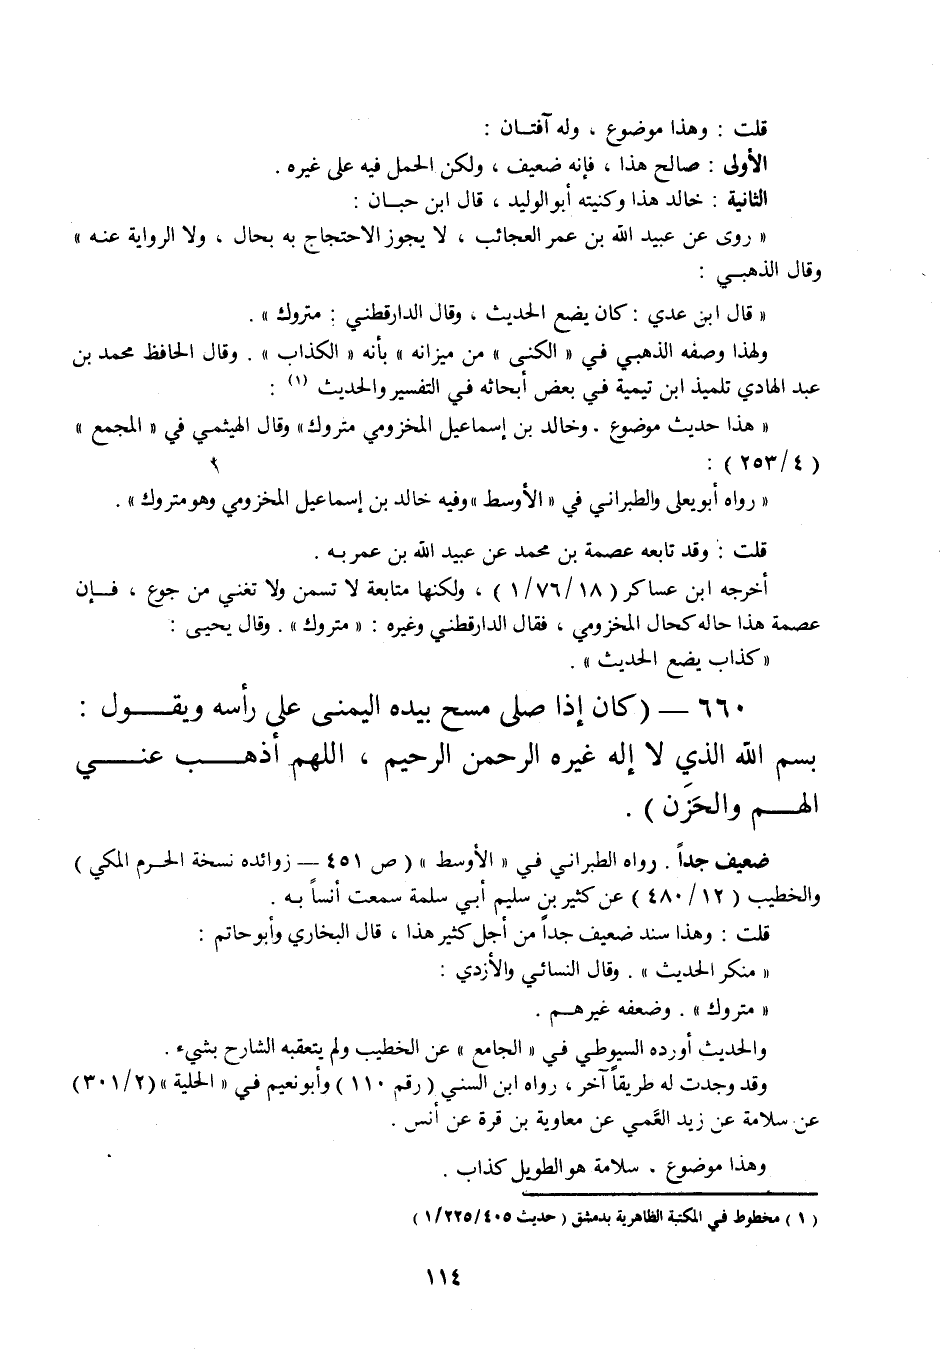 قلت : وهذا موضوع ، وله آفتـان :
الأولى : صالح هذا ، فإنه ضعيف ، ولكن الحمل فيه على غيره .
الثانية : خالد هذا وكنيته أبو الوليد ، قال ابن حبـان :
« روى عن عبيد الله بن عمر العجائب ، لا يجوز الاحتجاج به بحال ، ولا الرواية عنه »
وقال الذهبـي :
« قال ابن عدي : كان يضع الحديث ، وقال الدارقطني : متروك » .
ولهذا وصفه الذهبي في « الكنى » من ميزانه » بأنه « الكذاب » . وقال الحافظ محمد بن
عبد الهادي تلميذ ابن تيمية في بعض أبحاثه في التفسير والحديث (١) :
« هذا حديث موضوع . وخالد بن إسماعيل المخزومي متروك» وقال الهيثمي في « المجمع »
( ٤/٢٥٣ ) :
« رواه أبو يعلى والطبراني في « الأوسط » وفيه خالد بن إسماعيل المخزومي وهو متروك» .
قلت : وقد تابعه عصمة بن محمد عن عبيد الله بن عمر بـه .
أخرجه ابن عساكر ( ١٨/٧٦/١ ) ، ولكنها متابعة لا تسمن ولا تغني من جوع ، فــإن
عصمة هذا حاله كحال المخزومي ، فقال الدارقطني وغيره : « متروك» . وقال يحيـى :
« كذاب يضع الحديث » .
٦٦٠ — ( كان إذا صلى مسح بيده اليمنى على رأسه ويقـــول :
بسم الله الذي لا إله غيره الرحمن الرحيم ، اللهم أذهـــب عنـــي
الهـــم والحَزَن ) .
ضعيف جداً . رواه الطبراني في « الأوسط » ( ص ٤٥١ — زوائده نسخة الحـرم المكي )
والخطيب ( ١٢/٤٨٠ ) عن كثير بن سليم أبـي سلمة سمعت أنسـاً بـه .
قلت : وهذا سند ضعيف جداً من أجل كثير هذا ، قال البخاري وأبو حاتم :
« منكر الحديث » . وقال النسائي والأزدي :
« متروك » . وضعفه غيرهـم .
والحديث أورده السيوطي في « الجامع » عن الخطيب ولم يتعقبه الشارح بشيء .
وقد وجدت له طريقاً آخر ، رواه ابن السني ( رقم ١١٠ ) وأبو نعيم في « الحلية » (٢/٣٠١)
عن سلامة عن زيد العَّمي عن معاوية بن قرة عن أنس .
وهذا موضوع . سلامة هو الطويل كذاب .
( ١ ) مخطوط في المكتبة الظاهرية بدمشق ( حديث ٤٠٥/٢٢٥/١ )
١١٤